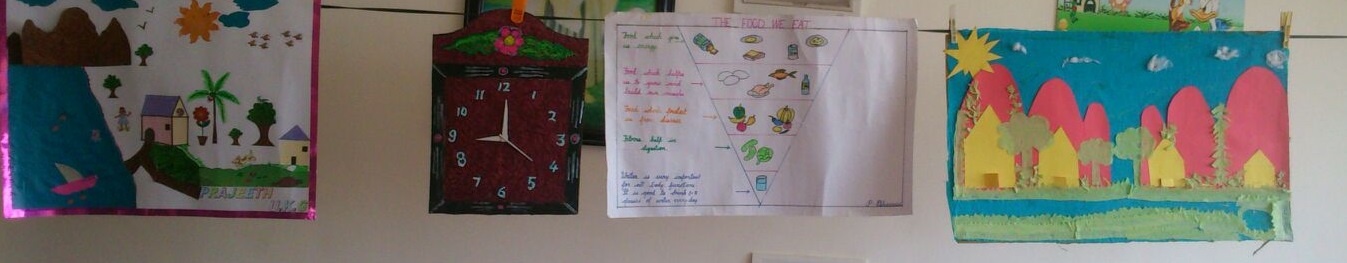 PRAJEETH
U.K.G
12
1
2
3
4
5
6
7
8
9
10
11
THE FOOD WE EAT
Food which give
us energy
Food which helps
us to grow and
build our muscle
Food which protect
us from disease
Fibres help in
digestion
Water is very important
for all body functions
It is good to drink
glasses of water every day